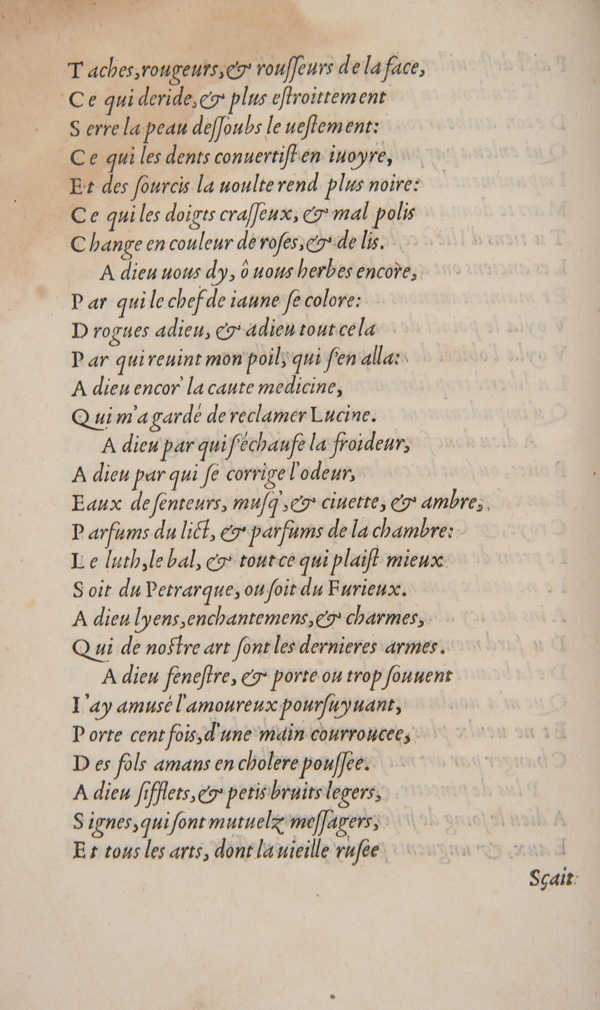 Taches, rougeurs, & rouſſeurs de la face,
Ce qui deride, & plus eſtroittement
Serre la peau deſſoubs le ueſtement:
Ce qui les dents conuertiſt en iuoyre,
Et des ſourcis la uoulte rend plus noire:
Ce qui les doigts craſſeux, & mal polis
Change en couleur de roſes, & de lis.
A dieu uous dy, ô uous herbes encore,
Par qui le chef de iaune ſe colore:
Drogues adieu, & adieu tout cela
Par qui reuint mon poil, qui ſ'en alla:
A dieu encor' la caute medicine,
Qui m'a gardé de reclamer Lucine.
A dieu par qui ſ'échaufe la froideur,
A dieu par qui ſe corrige l'odeur,
Eaux de ſenteurs, muſq', & ciuette, & ambre,
Parfums du lict, & parfums de la chambre:
Le luth, le bal, & tout ce qui plaiſt mieux
Soit du Petrarque, ou ſoit du Furieux.
A dieu lyens, enchantemens, & charmes,
Qui de noſtre art ſont les dernieres armes.
A dieu feneſtre, & porte ou trop ſouuent
I'ay amusé l'amoureux pourſuyuant,
Porte cent fois, d'une main courroucee,
Des fols amans en cholere pouſſée.
A dieu ſifflets, & petis bruits legers,
Signes, qui ſont mutuelz meſſagers,
Et tous les arts, dont la uieille ruſee
Sçait